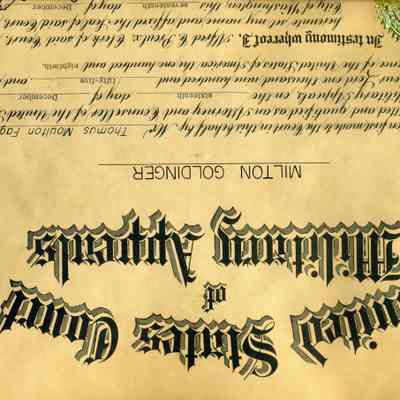 nited States Court
of
Military Appeals
MILTON GOLDINGER
first made to the Court in this behalf by Mr. Thomas Moulton Fag
and qualified as an Attorney and Counsellor of the United S
Military Appeals, on the sixteenth day of December
our Lord one thousand nine hundred and fifty-five, and
of the United States of America the one hundred and eightieth.
In testimony whereof I, Alfred C. Proulx, Clerk of said Court,
hereunto set my hand and affixed the Seal of said Court
City of Washington this seventeenth day of December